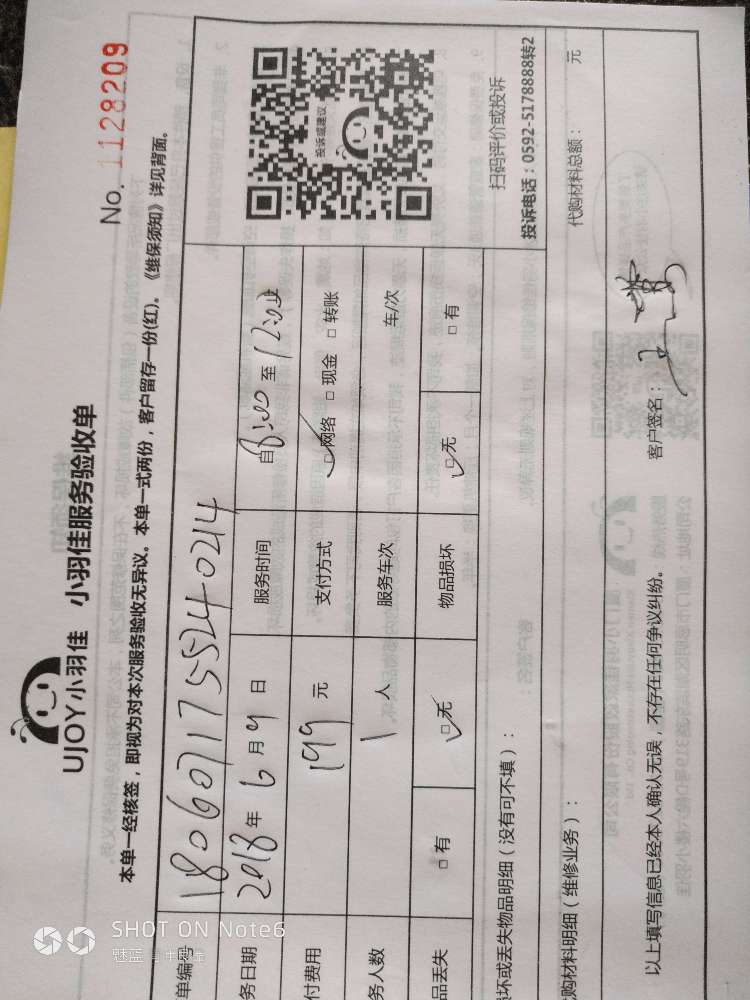 No. 1128209
UJOY小羽佳 小羽佳服务验收单
本单一经核签，即视为对本次服务验收无异议。本单一式两份，客户留存一份(红)。《维保须知》详见背面。
单编号 1806071755240214
务日期 2018年6月9日 服务时间 自8:00至12:00
付费用 199元 支付方式 □网络 □现金 □转账
务人数 1人 服务车次 车/次
品丢失 □有 □无 物品损坏 □无 □有
投诉或建议
扫码评价或投诉
投诉电话：0592-5178888转2
损坏或丢失物品明细（没有可不填）：
购材料明细（维修业务）： 代购材料总额： 元
以上填写信息已经本人确认无误，不存在任何争议纠纷。 客户签名：
SHOT ON Note6